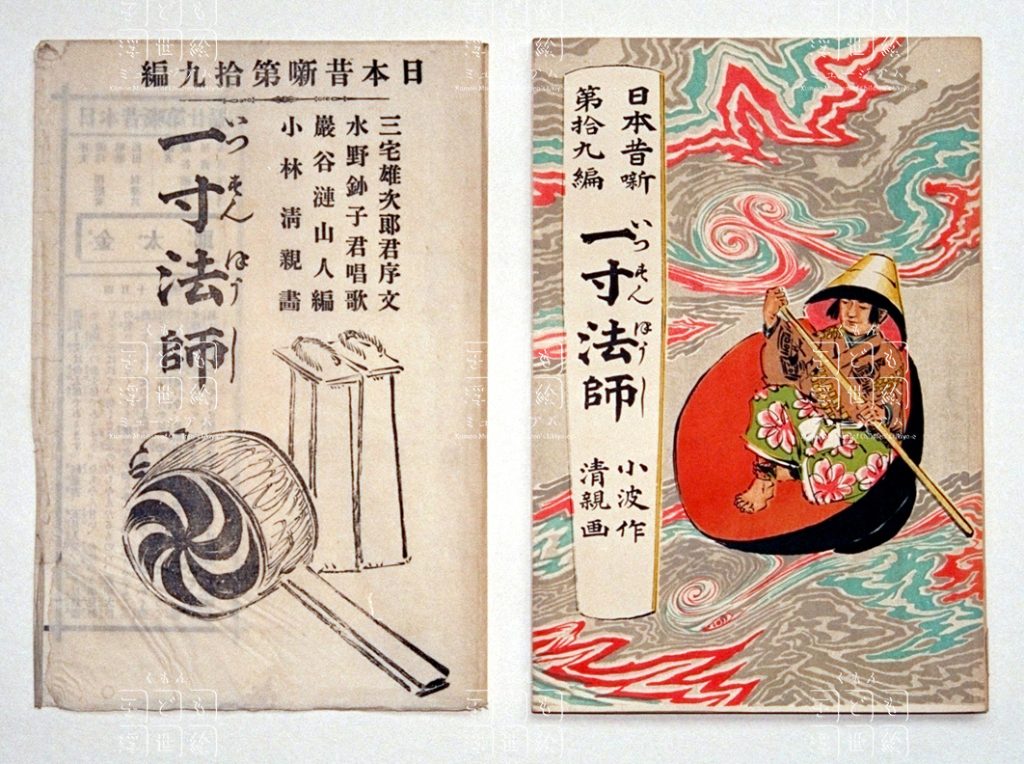 日本昔噺第拾九編
三宅雄次郎君序文
水野鈔子君唱歌
巖谷漣山人編
小林清親畫
いつすんぼうし
一寸法師
日本昔噺
第拾九編
いつすんぼうし
一寸法師
小波作
清親画
くもん
子ども
浮世絵
ミュージアム
Kumon Museum of Children's Ukiyo-e